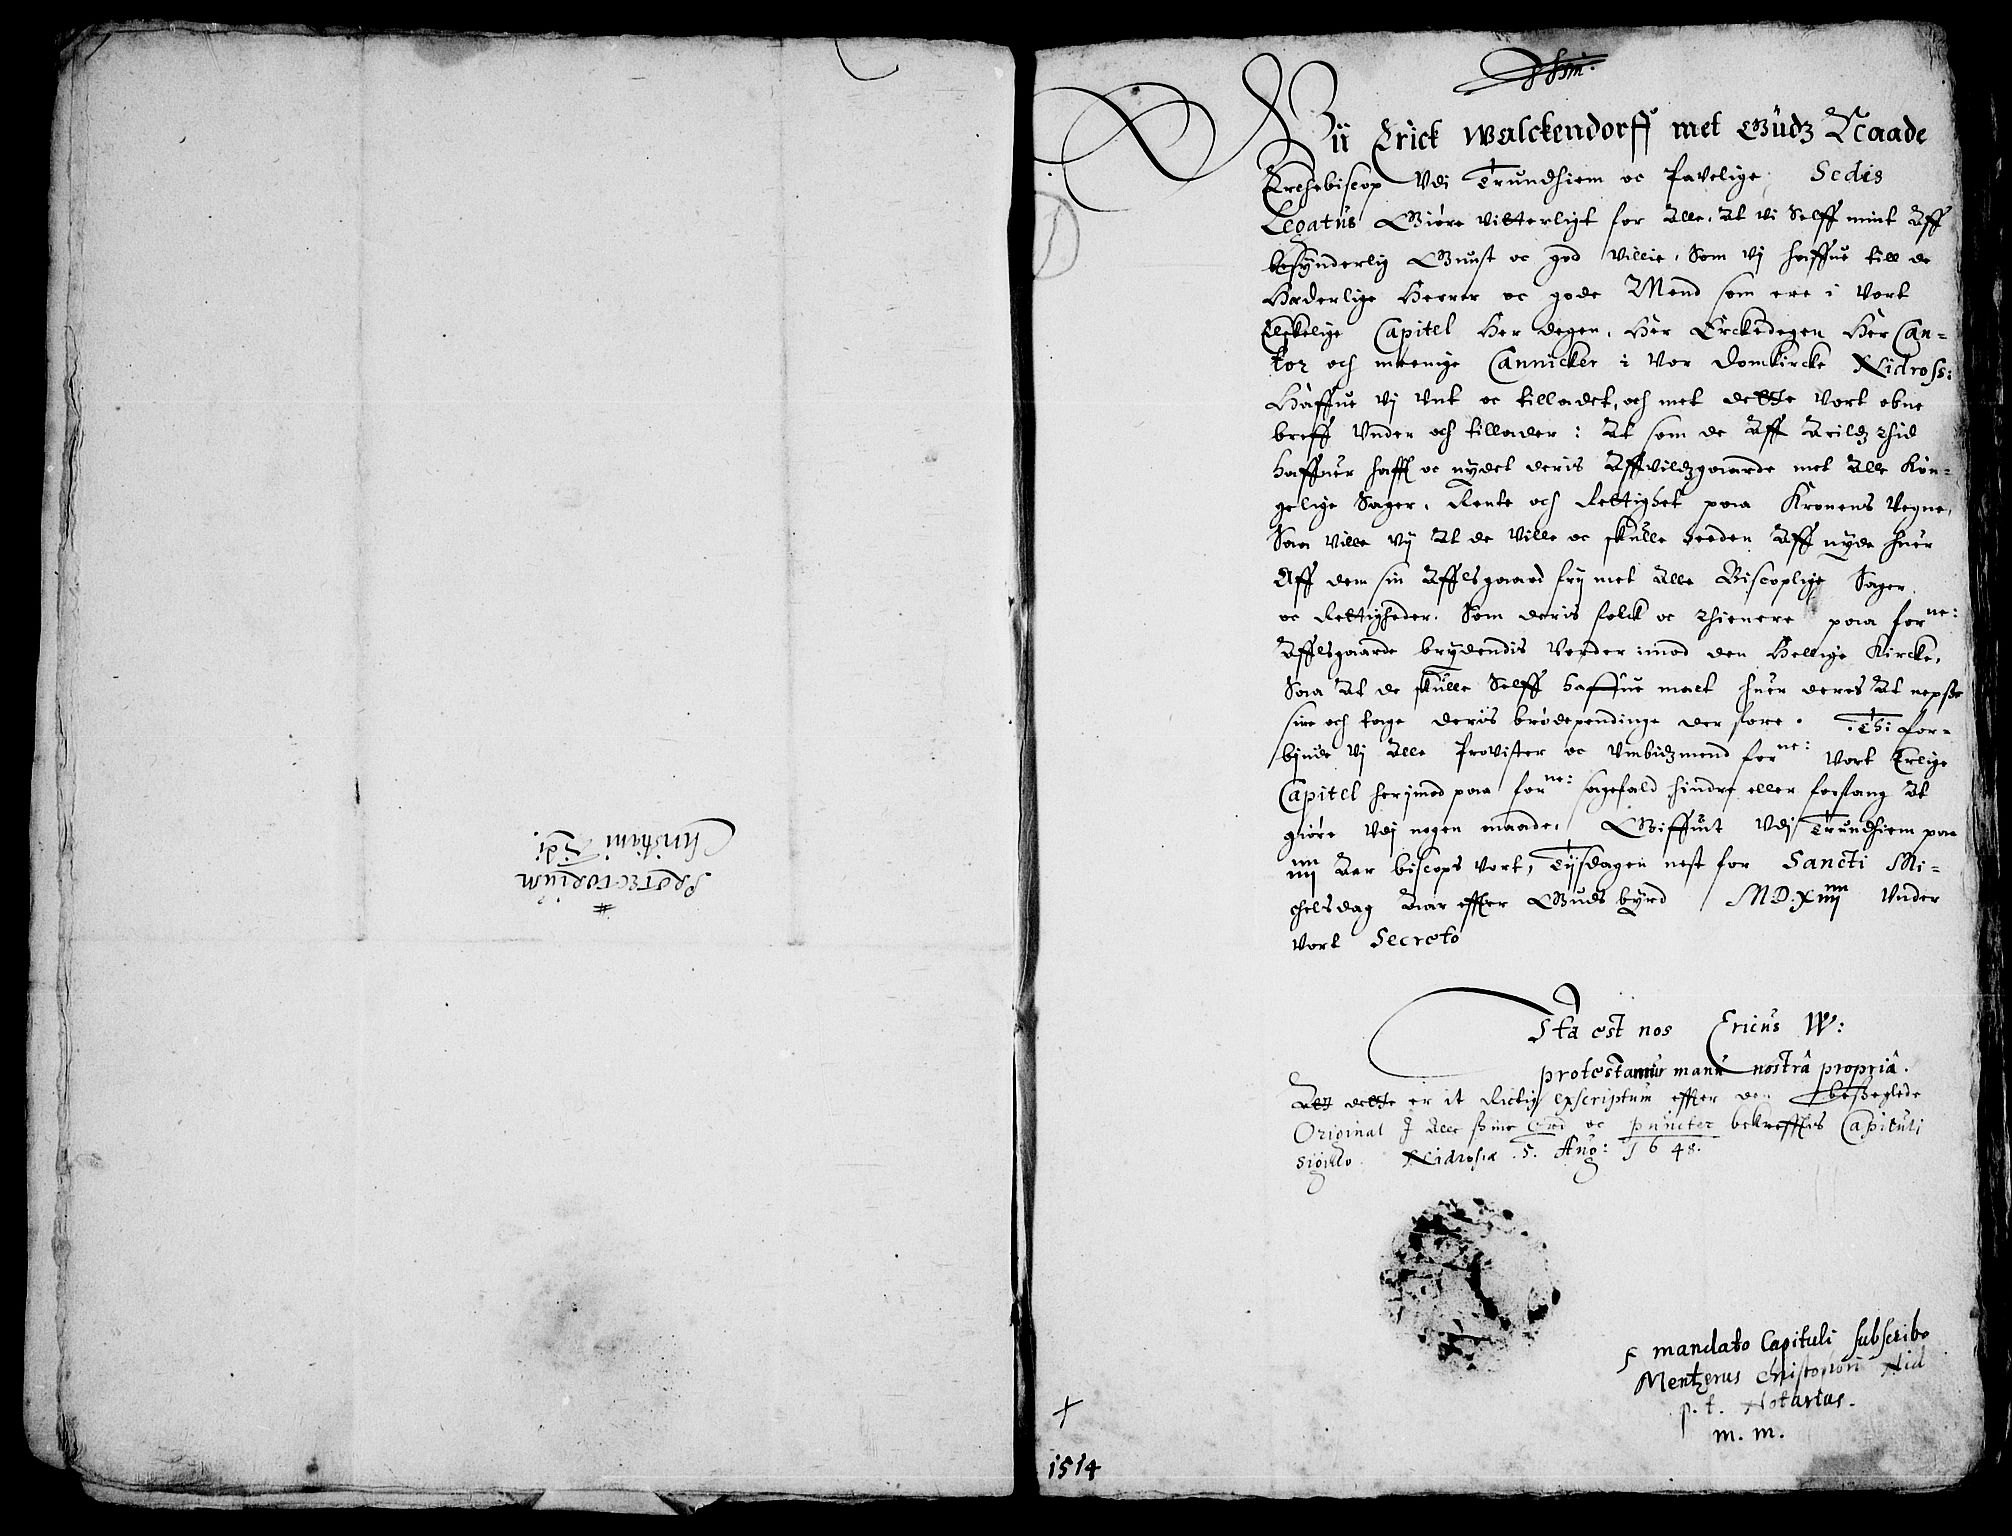 PROTECTORIUM
Christiani 3di.
Vii Erick Walckendorff met Gudz Naade
Erchebiscop Vdi Trundhiem oc Pavelige Sedis
Legatus Giøre vitterligt for Alle, At vi Selff mint Aff
besynderlig Gunst oc god Villie, Som vij haffue till de
Hæderlige Herrer oc gode Mend som ere i Vort
Elskelige Capitel Her degen, Her Erckedegen Her Can-
tor och meenige Cannicker i Vor Domkircke Nidross:
Haffue vij Vnt oc tilladet, och met dette Vort obne
breff Vnder och tillader: At som de Aff Arildz Thid
haffuer hafft oc nydet deris Affvildzgaarde met Alle Kon-
gelige Sager, Rente och Rettighet paa Kronens Vegne,
Saa Ville Vij At de Ville oc skulle heeden Aff nyde huer
Aff dem sin Afflsgaard frij met Alle Biscoplige Sager
oc Rettigheder. Som deris folck oc Thienere paa forne:
Afflsgaarde brydendis Vorder imod den Hellige Kircke,
Saa At de skulle Selff haffue mact huer deres At nepsse
sine och tage deris brødependinge der fore. Thi for-
bynde Vj Alle Provister oc Vmbudzmend forne: Vort Erlige
Capitel herimod paa forne: sagefald hindre eller forfang At
giøre Vdj nogen maade. Giffuit Vdj Trundhiem paa
iiij Aar biscops Vort, Tijsdagen nest for Sancti Mi-
chelsdag Aar effter Guds byrd MD.Xiiij Vnder
Vort Secreto
Ita est nos Ericus W:
protestamur manu nostrâ propriâ.
Att dette er it Rictig Exscriptum effter den besseglede
Original I Alle ssine Ord oc puncter bekrefftis Capituli
Sigillo. Nidrosiæ .5. Aug: 1648.
E mandato Capituli subscribo
Mentzerus Christophori Nid
p. t. Notarius.
m. m.
1514